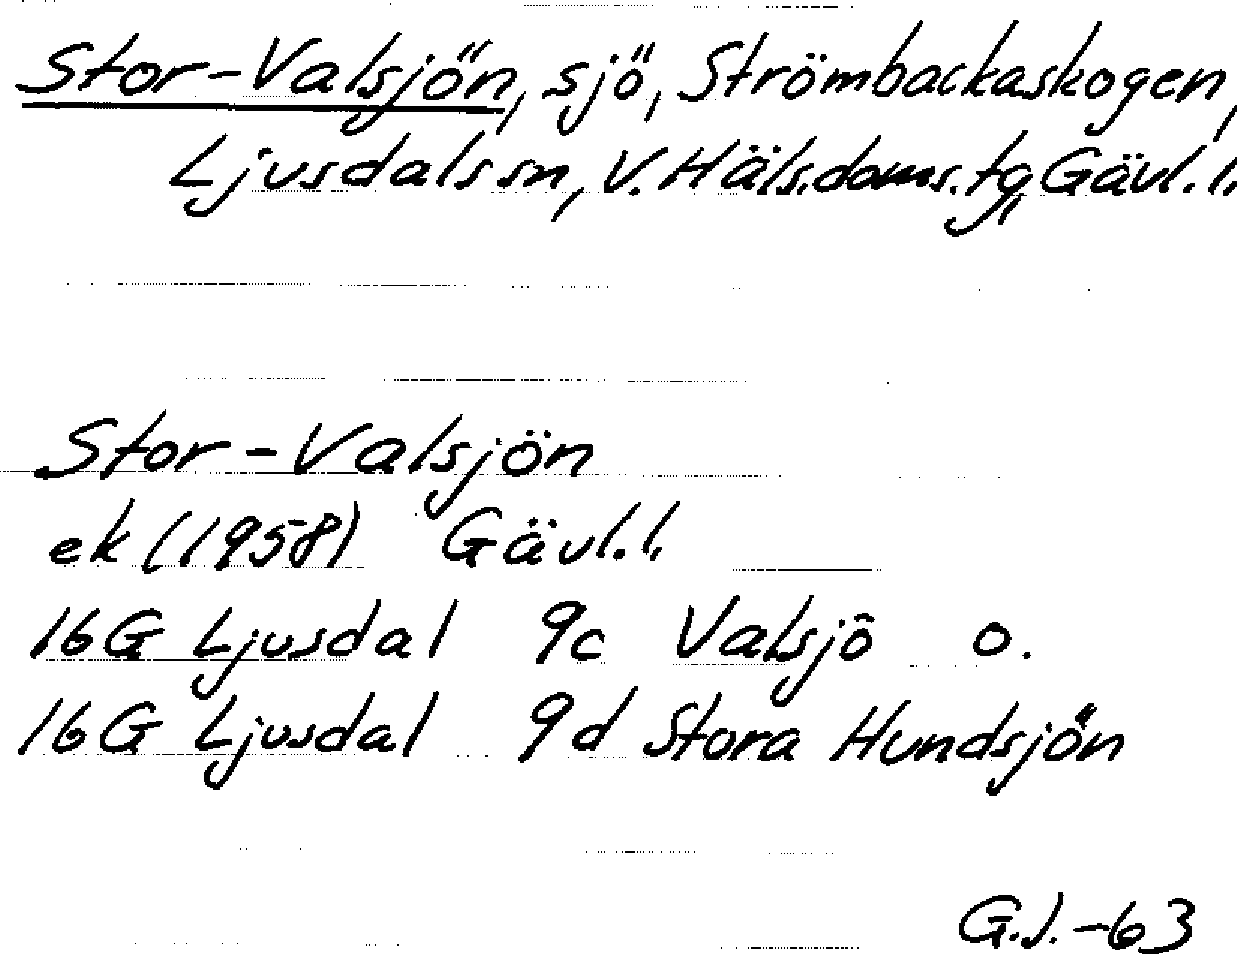 Stor-Valsjön, sjö, Strömbackaskogen,
Ljusdals sn, V. Häls. doms. tg, Gävl. l.
Stor-Valsjön
ek (1958) Gävl. l.
16G Ljusdal 9c Valsjö o.
16G Ljusdal 9d Stora Hundsjön
G.J. -63